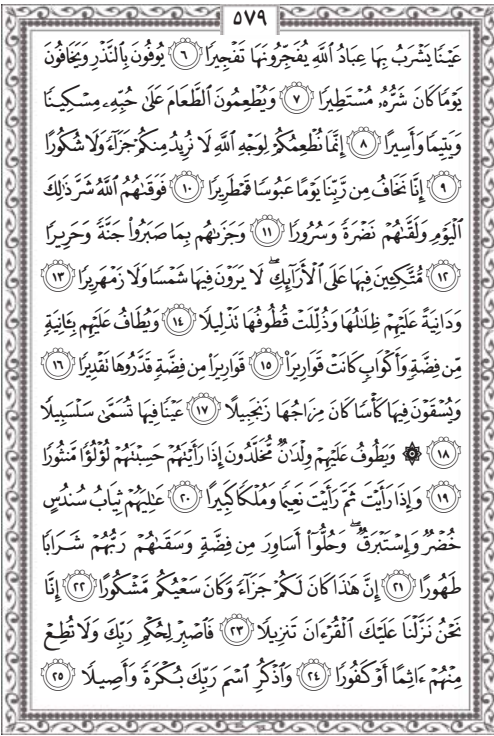 ٥٧٩
عَيْنًا يَشْرَبُ بِهَا عِبَادُ ٱللَّهِ يُفَجِّرُونَهَا تَفْجِيرًا ٦ يُوفُونَ بِٱلنَّذْرِ وَيَخَافُونَ
يَوْمًا كَانَ شَرُّهُۥ مُسْتَطِيرًا ٧ وَيُطْعِمُونَ ٱلطَّعَامَ عَلَىٰ حُبِّهِۦ مِسْكِينًا
وَيَتِيمًا وَأَسِيرًا ٨ إِنَّمَا نُطْعِمُكُمْ لِوَجْهِ ٱللَّهِ لَا نُرِيدُ مِنكُمْ جَزَآءً وَلَا شُكُورًا
٩ إِنَّا نَخَافُ مِن رَّبِّنَا يَوْمًا عَبُوسًا قَمْطَرِيرًا ١٠ فَوَقَىٰهُمُ ٱللَّهُ شَرَّ ذَٰلِكَ
ٱلْيَوْمِ وَلَقَّىٰهُمْ نَضْرَةً وَسُرُورًا ١١ وَجَزَىٰهُم بِمَا صَبَرُوا۟ جَنَّةً وَحَرِيرًا
١٢ مُّتَّكِـِٔينَ فِيهَا عَلَى ٱلْأَرَآئِكِ ۖ لَا يَرَوْنَ فِيهَا شَمْسًا وَلَا زَمْهَرِيرًا ١٣
وَدَانِيَةً عَلَيْهِمْ ظِلَٰلُهَا وَذُلِّلَتْ قُطُوفُهَا تَذْلِيلًا ١٤ وَيُطَافُ عَلَيْهِم بِـَٔانِيَةٍ
مِّن فِضَّةٍ وَأَكْوَابٍ كَانَتْ قَوَارِيرَا۠ ١٥ قَوَارِيرَا۟ مِن فِضَّةٍ قَدَّرُوهَا تَقْدِيرًا ١٦
وَيُسْقَوْنَ فِيهَا كَأْسًا كَانَ مِزَاجُهَا زَنجَبِيلًا ١٧ عَيْنًا فِيهَا تُسَمَّىٰ سَلْسَبِيلًا
١٨ ۞ وَيَطُوفُ عَلَيْهِمْ وِلْدَٰنٌ مُّخَلَّدُونَ إِذَا رَأَيْتَهُمْ حَسِبْتَهُمْ لُؤْلُؤًا مَّنثُورًا
١٩ وَإِذَا رَأَيْتَ ثَمَّ رَأَيْتَ نَعِيمًا وَمُلْكًا كَبِيرًا ٢٠ عَٰلِيَهُمْ ثِيَابُ سُندُسٍ
خُضْرٌ وَإِسْتَبْرَقٌ ۖ وَحُلُّوٓا۟ أَسَاوِرَ مِن فِضَّةٍ وَسَقَىٰهُمْ رَبُّهُمْ شَرَابًا
طَهُورًا ٢١ إِنَّ هَٰذَا كَانَ لَكُمْ جَزَآءً وَكَانَ سَعْيُكُم مَّشْكُورًا ٢٢ إِنَّا
نَحْنُ نَزَّلْنَا عَلَيْكَ ٱلْقُرْءَانَ تَنزِيلًا ٢٣ فَٱصْبِرْ لِحُكْمِ رَبِّكَ وَلَا تُطِعْ
مِنْهُمْ ءَاثِمًا أَوْ كَفُورًا ٢٤ وَٱذْكُرِ ٱسْمَ رَبِّكَ بُكْرَةً وَأَصِيلًا ٢٥